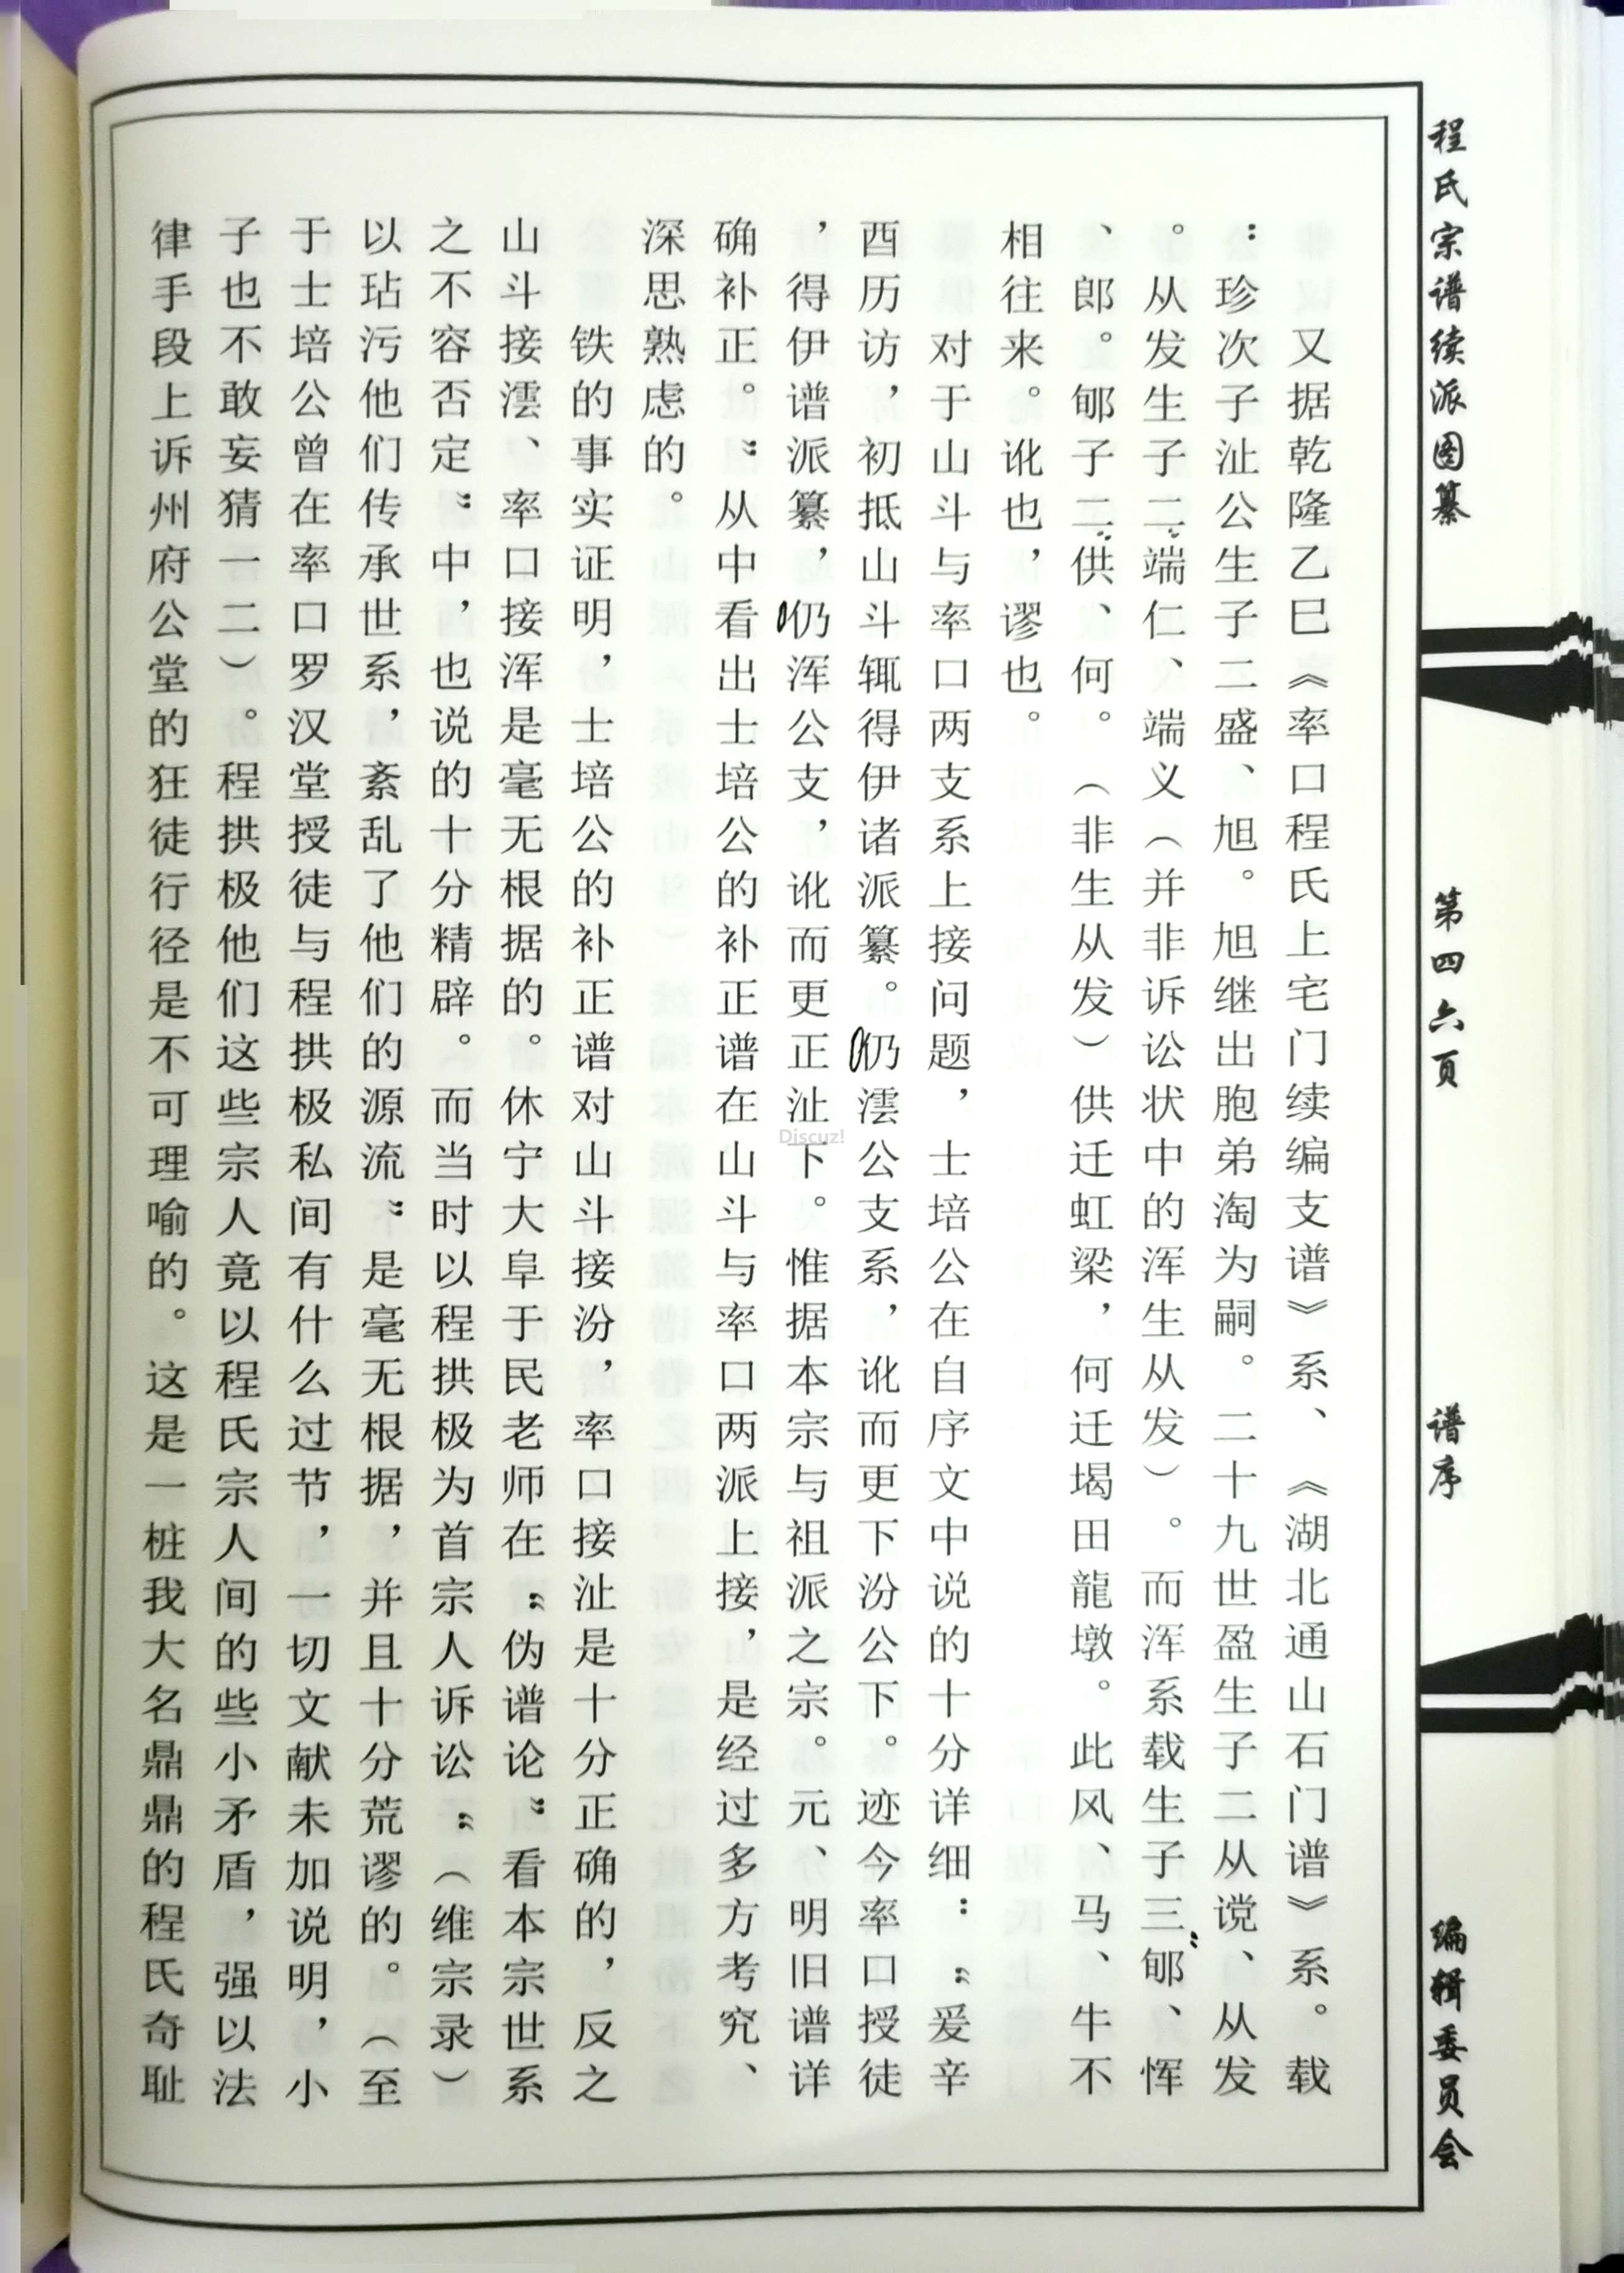 程氏宗谱续派图纂
第四六页
谱序
编辑委员会
又据乾隆乙巳《率口程氏上宅门续编支谱》系、《湖北通山石门谱》系。载
：珍次子沚公生子二盛、旭。旭继出胞弟淘为嗣。二十九世盈生子二从谠、从发
。从发生子二：端仁、端义（并非诉讼状中的浑生从发）。而浑系载生子三：郇、恽
、郎。郇子二：供、何。（非生从发）供迁虹梁，何迁堨田龍墩。此风、马、牛不
相往来。讹也，谬也。
对于山斗与率口两支系上接问题，士培公在自序文中说的十分详细：“爰辛
酉历访，初抵山斗辄得伊诸派纂。仍澐公支系，讹而更下汾公下。迹今率口授徒
，得伊谱派纂，仍浑公支，讹而更正沚下。惟据本宗与祖派之宗。元、明旧谱详
确补正。”从中看出士培公的补正谱在山斗与率口两派上接，是经过多方考究、
深思熟虑的。
铁的事实证明，士培公的补正谱对山斗接汾，率口接沚是十分正确的，反之
山斗接澐、率口接浑是毫无根据的。休宁大阜于民老师在“伪谱论”看本宗世系
之不容否定”中，也说的十分精辟。而当时以程拱极为首宗人诉讼“（维宗录）
以玷污他们传承世系，紊乱了他们的源流”是毫无根据，并且十分荒谬的。（至
于士培公曾在率口罗汉堂授徒与程拱极私间有什么过节，一切文献未加说明，小
子也不敢妄猜一二）。程拱极他们这些宗人竟以程氏宗人间的些小矛盾，强以法
律手段上诉州府公堂的狂徒行径是不可理喻的。这是一桩我大名鼎鼎的程氏奇耻
Discuz!